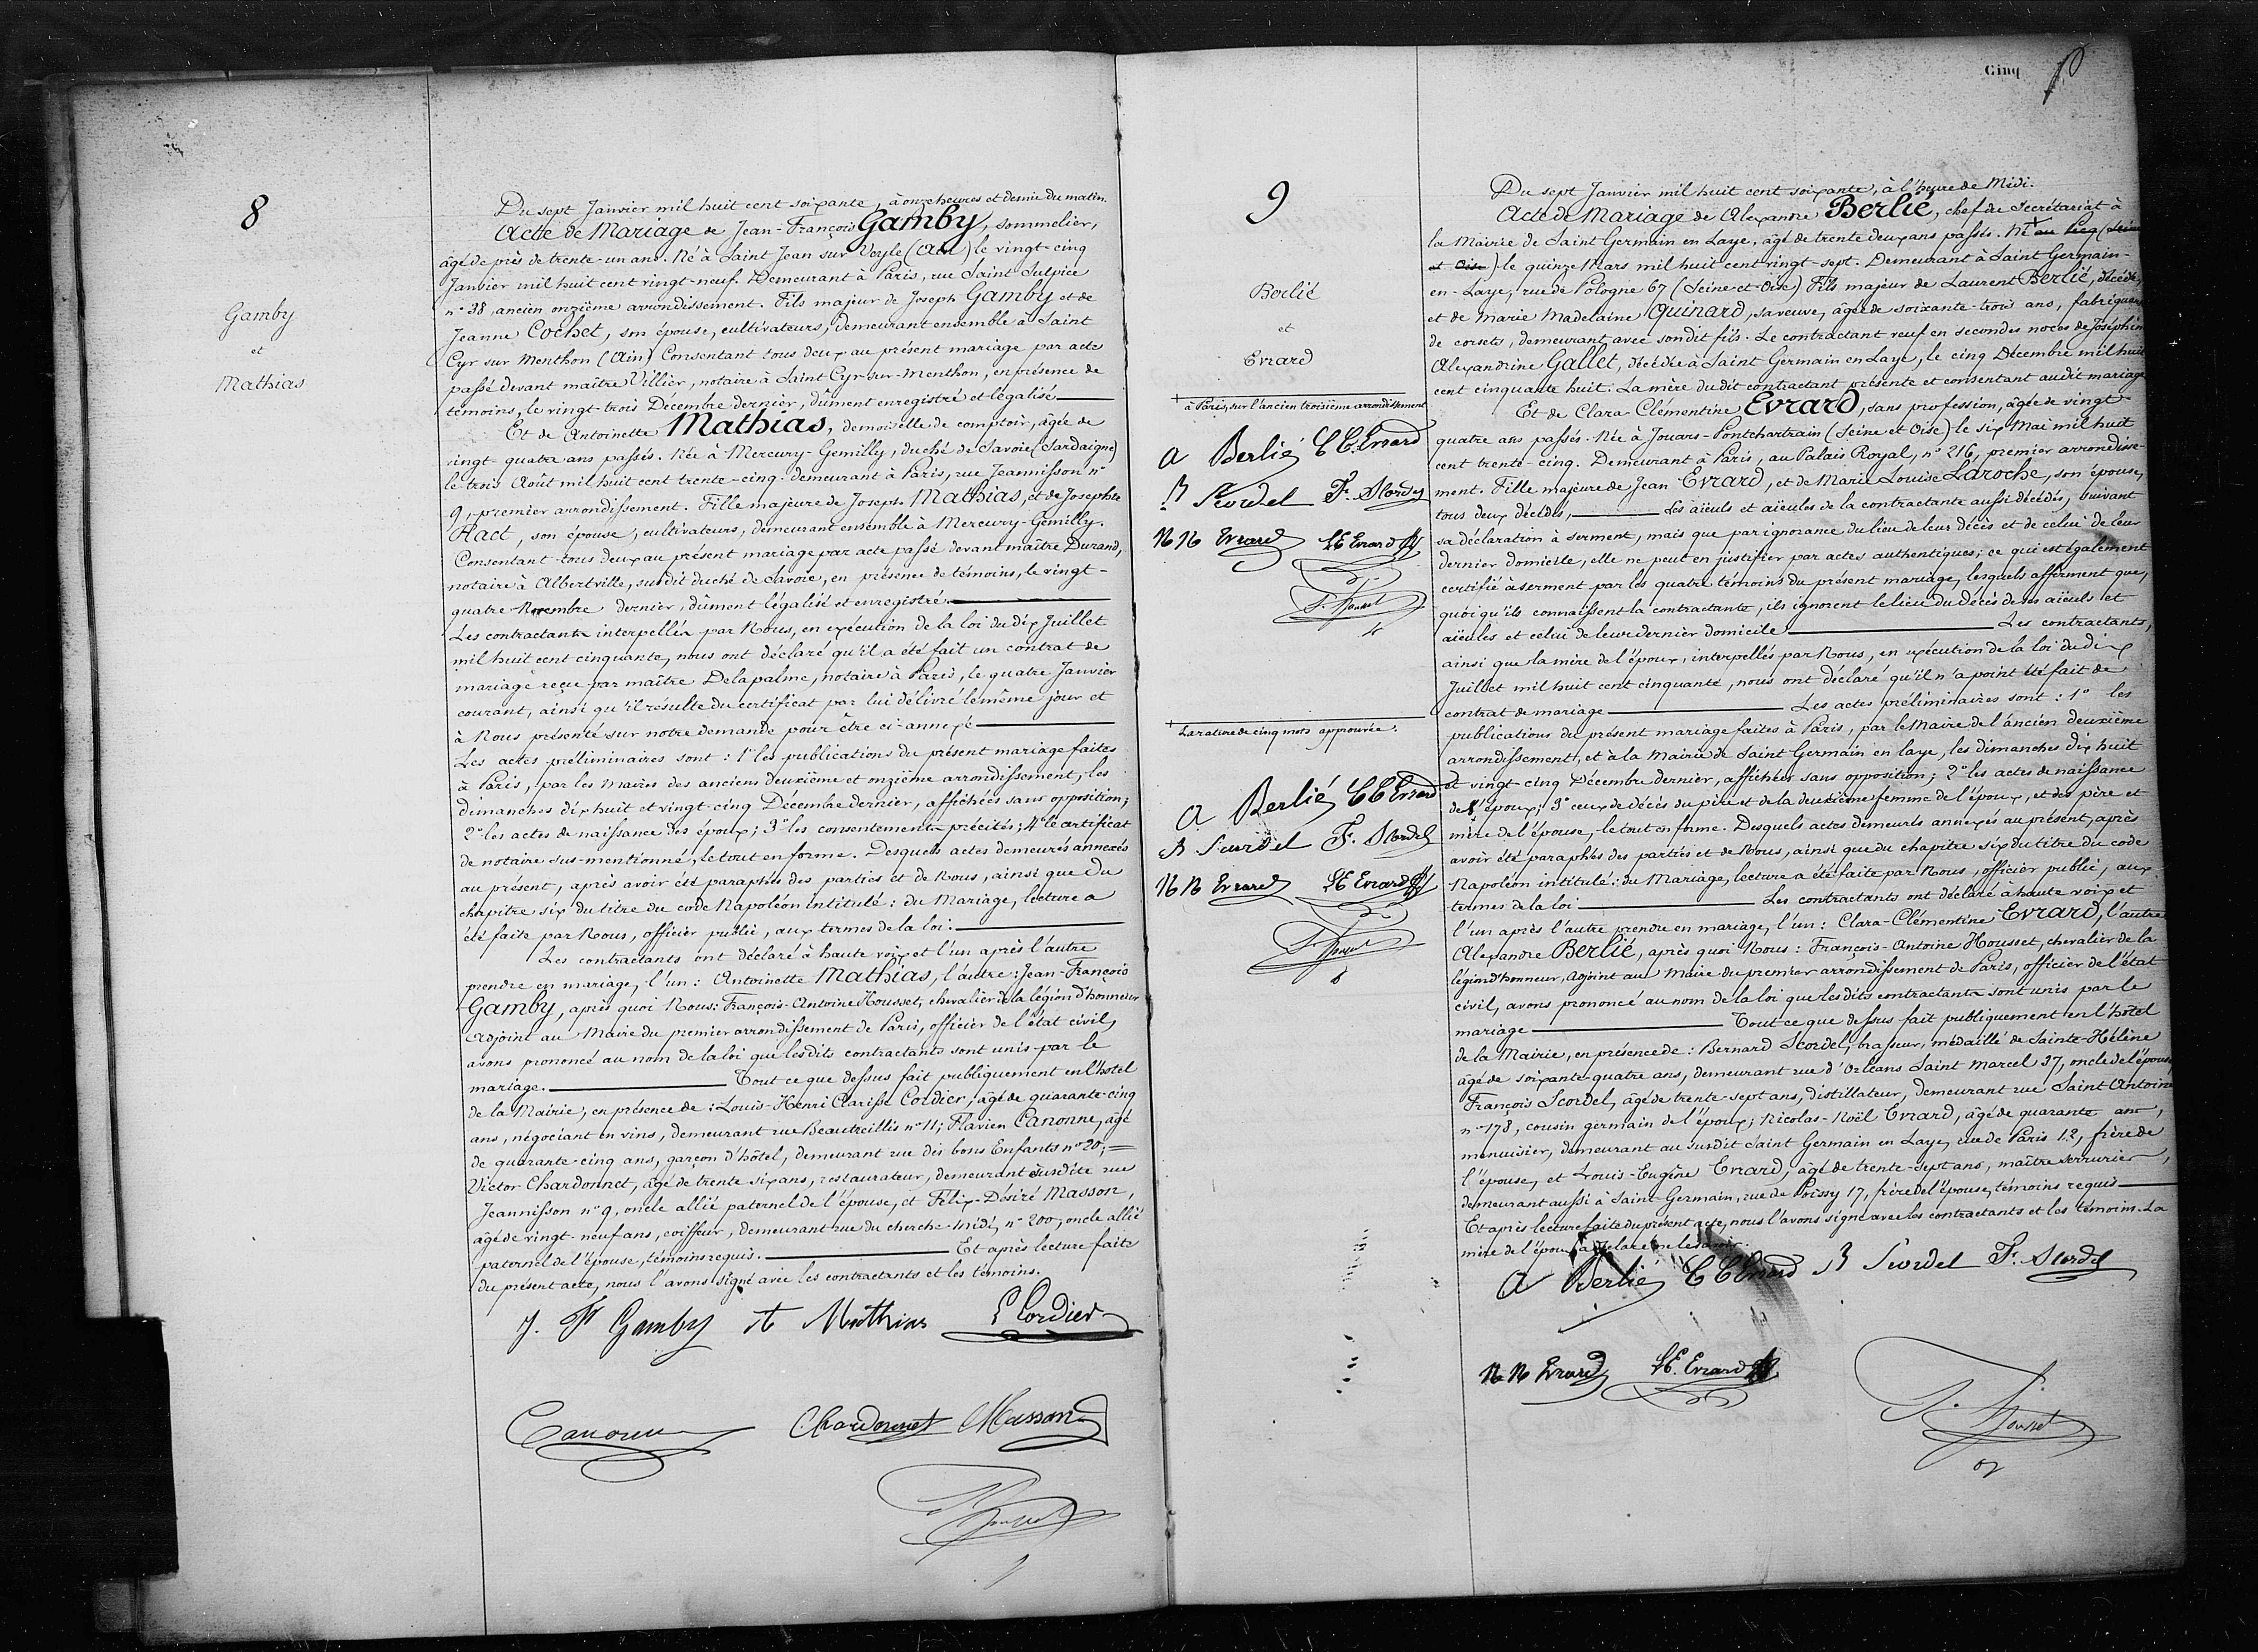 8
Gamby
et
Mathias
Du sept Janvier mil huit cent soixante, à onze heures et demie du matin.
Acte de Mariage de Jean-François Gamby, sommelier,
âgé de près de trente-un ans. Né à Saint Jean sur Veyle (Ain) le vingt-cinq
Janvier mil huit cent vingt-neuf. Demeurant à Paris, rue Saint Sulpice
n° 38, ancien onzième arrondissement. Fils majeur de Joseph Gamby et de
Jeanne Cochet, son épouse, cultivateurs, demeurant ensemble à Saint
Cyr sur Menthon (Ain) Consentant tous deux au présent mariage par acte
passé devant maître Villier, notaire à Saint Cyr-sur-Menthon, en présence de
témoins, le vingt-trois Décembre dernier, dûment enregistré et légalisé
Et de Antoinette Mathias, demoiselle de comptoir, âgée de
vingt-quatre ans passés. Née à Mercury-Gemilly, duché de Savoie (Sardaigne)
le trois Août mil huit cent trente-cinq. demeurant à Paris, rue Jeannisson n°
9, premier arrondissement. Fille majeure de Joseph Mathias, et de Josephte
Ract, son épouse, cultivateurs, demeurant ensemble à Mercury-Gemilly.
Consentant tous deux au présent mariage par acte passé devant maître Durand,
notaire à Albertville, susdit duché de Savoie, en présence de témoins, le vingt-
quatre Novembre dernier, dûment légalisé et enregistré.
Les contractants interpellés par Nous, en exécution de la loi du dix Juillet
mil huit cent cinquante, nous ont déclaré qu'il a été fait un contrat de
mariage reçu par maître Delapalme, notaire à Paris, le quatre Janvier
courant, ainsi qu'il résulte du certificat par lui délivré le même jour et
à Nous présenté sur notre demande pour être ci-annexé
Les actes préliminaires sont : 1° les publications du présent mariage faites
à Paris, par les maires des anciens deuxième et onzième arrondissement, les
dimanches dix huit et vingt-cinq Décembre dernier, affichées sans opposition;
2° les actes de naissance des époux; 3° les consentements précités; 4° le certificat
de notaire sus-mentionné, le tout en forme. Desquels actes demeurés annexés
au présent, après avoir été paraphés des parties et de Nous, ainsi que du
chapitre six du titre du code Napoléon intitulé : du Mariage, lecture a
été faite par Nous, officier public, aux termes de la loi :
Les contractants ont déclaré à haute voix et l'un après l'autre
prendre en mariage, l'un : Antoinette Mathias, l'autre : Jean-François
Gamby, après quoi Nous : François-Antoine Housset, chevalier de la légion d'honneur
Adjoint au Maire du premier arrondissement de Paris, officier de l'état civil,
avons prononcé au nom de la loi que les dits contractants sont unis par le
mariage. Tout ce que dessus fait publiquement en l'hôtel
de la Mairie, en présence de : Louis-Henri Clarisse Cordier, âgé de quarante-cinq
ans, négociant en vins, demeurant rue Beautreillis n° 11; Flavien Canonne, âgé
de quarante-cinq ans, garçon d'hôtel, demeurant rue des bons Enfants n° 20;
Victor Chardonnet, âgé de trente six ans, restaurateur, demeurant susdite rue
Jeannisson n° 9, oncle allié paternel de l'épouse, et Félix-Désiré Masson,
âgé de vingt-neuf ans, coiffeur, demeurant rue du cherche-midi, n° 200, oncle allié
paternel de l'épouse, témoins requis. Et après lecture faite
du présent acte, nous l'avons signé avec les contractants et les témoins.
J. F Gamby A Mathias L Cordier
Canonne Chardonnet Masson
Housset
Cinq
9
Berlié
et
Evrard
+ à Paris, sur l'ancien troisième arrondissement
A Berlié C C Evrard
B Scordel F. Scordel
N N Evrard L E Evrard
F. Housset
+ La rature de cinq mots approuvée.
A Berlié C C Evrard
B Scordel F. Scordel
N N Evrard L E Evrard
F. Housset
Du sept Janvier mil huit cent soixante, à l'heure de Midi.
Acte de Mariage de Alexandre Berlié, chef du Secrétariat à
la Mairie de Saint Germain en Laye, âgé de trente deux ans passés. Né + au Pecq (Seine
et Oise) le quinze Mars mil huit cent vingt-sept. Demeurant à Saint Germain-
en-Laye, rue de Pologne 67 (Seine-et-Oise) Fils majeur de Laurent Berlié, décédé,
et de Marie Madelaine Quinard, sa veuve, âgée de soixante-trois ans, fabriquant
de corsets, demeurant avec son dit fils. Le contractant veuf en secondes noces de Joséphine
Alexandrine Gallet, décédée à Saint Germain en Laye, le cinq Décembre mil huit
cent cinquante huit. La mère du dit contractant présente et consentant au dit mariage
Et de Clara Clémentine Evrard, sans profession, âgée de vingt-
quatre ans passés. Née à Jouars-Pontchartrain (Seine et Oise) le six Mai mil huit
cent trente-cinq. Demeurant à Paris, au Palais Royal, n° 216, premier arrondisse-
ment. Fille majeure de Jean Evrard, et de Marie Louise Laroche, son épouse,
tous deux décédés, Les aïeuls et aïeules de la contractante aussi décédés, suivant
sa déclaration à serment, mais que par ignorance du lieu de leur décès et de celui de leur
dernier domicile, elle ne peut en justifier par actes authentiques; ce qui est également
certifié à serment par les quatre témoins du présent mariage, lesquels afferment que,
quoi qu'ils connaissent la contractante, ils ignorent le lieu du décès de ses aïeuls et
aïeules et celui de leur dernier domicile Les contractants,
ainsi que la mère de l'époux, interpellés par Nous, en exécution de la loi du dix
Juillet mil huit cent cinquante, nous ont déclaré qu'il n'a point été fait de
contrat de mariage Les actes préliminaires sont : 1° les
publications du présent mariage faites à Paris, par le Maire de l'ancien deuxième
arrondissement, et à la Mairie de Saint Germain en laye, les dimanches dix huit
et vingt-cinq Décembre dernier, affichées sans opposition; 2° les actes de naissance
de l'époux; 3° ceux de décès du père et de la deuxième femme de l'époux, et des père et
mère de l'épouse, le tout en forme. Desquels actes demeurés annexés au présent, après
avoir été paraphés des parties et de Nous, ainsi que du chapitre six du titre du code
Napoléon intitulé : du Mariage, lecture a été faite par Nous, officier public, aux
termes de la loi Les contractants ont déclaré à haute voix et
l'un après l'autre prendre en mariage, l'un : Clara-Clémentine Evrard, l'autre
Alexandre Berlié, après quoi Nous : François-Antoine Housset, chevalier de la
légion d'honneur, Adjoint au Maire du premier arrondissement de Paris, officier de l'état
civil, avons prononcé au nom de la loi que les dits contractants sont unis par le
mariage Tout ce que dessus fait publiquement en l'hôtel
de la Mairie, en présence de : Bernard Scordel, brasseur, médaillé de Sainte-Hélène
âgé de soixante-quatre ans, demeurant rue d'Orléans Saint Marcel 37, oncle de l'époux,
François Scordel, âgé de trente-sept ans, distillateur, demeurant rue Saint Antoine
n° 178, cousin germain de l'époux; Nicolas-Noël Evrard, âgé de quarante ans,
menuisier, demeurant au susdit Saint Germain en Laye, rue de Paris 12, frère de
l'épouse, et Louis-Eugène Evrard, âgé de trente-sept ans, maître serrurier,
demeurant aussi à Saint Germain, rue de Poissy 17, frère de l'épouse, témoins requis
Et après lecture faite du présent acte, nous l'avons signé avec les contractants et les témoins. La
mère de l'époux a déclaré ne le savoir.
A Berlié C C Evrard B Scordel F. Scordel
N N Evrard L E. Evrard
F. Housset